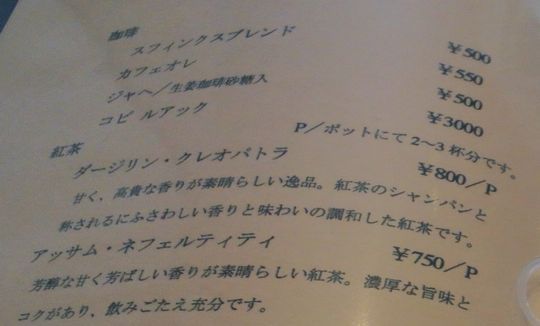 珈琲
スフィンクスブレンド ¥500
カフェオレ ¥550
ジャヘ／生姜珈琲砂糖入 ¥500
コピ ルアック ¥3000
紅茶 P／ポットにて2～3杯分です。
ダージリン・クレオパトラ ¥800／P
甘く、高貴な香りが素晴らしい逸品。紅茶のシャンパンと
称されるにふさわしい香りと味わいの調和した紅茶です。
アッサム・ネフェルティティ ¥750／P
芳醇な甘く芳ばしい香りが素晴らしい紅茶。濃厚な旨味と
コクがあり、飲みごたえ充分です。